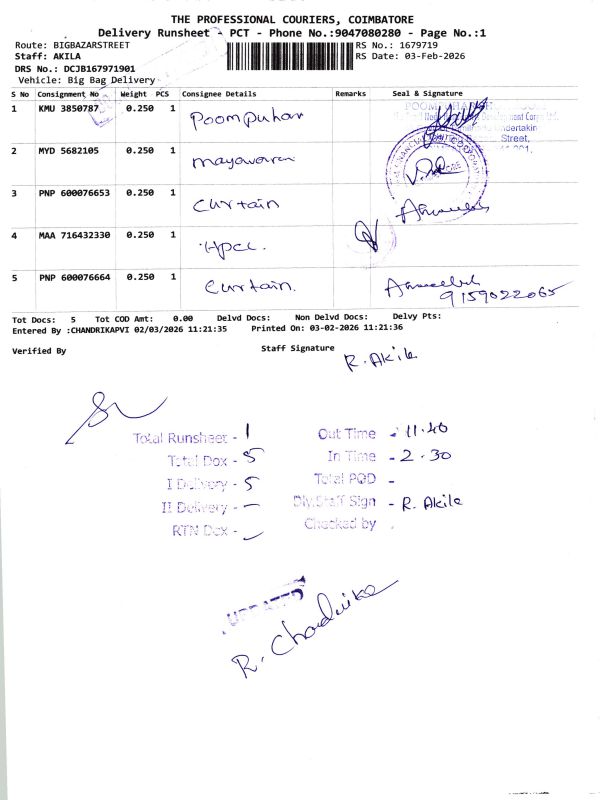 THE PROFESSIONAL COURIERS, COIMBATORE
Delivery Runsheet - PCT - Phone No.:9047080280 - Page No.:1
Route: BIGBAZARSTREET RS No.: 1679719
Staff: AKILA RS Date: 03-Feb-2026
DRS No.: DCJB167971901
Vehicle: Big Bag Delivery
S No Consignment No Weight PCS Consignee Details Remarks Seal & Signature
1 KMU 3850787 0.250 1 Poompuhar
2 MYD 5682105 0.250 1
3 PNP 600076653 0.250 1 Curtain
4 MAA 716432330 0.250 1 Hpcl.
5 PNP 600076664 0.250 1 Curtain.
9159022065
Tot Docs: 5 Tot COD Amt: 0.00 Delvd Docs: Non Delvd Docs: Delvy Pts:
Entered By :CHANDRIKAPVI 02/03/2026 11:21:35 Printed On: 03-02-2026 11:21:36
Verified By Staff Signature R. Akila
Total Runsheet - 1 Out Time - 11.40
Total Dox - 5 In Time - 2.30
I Delivery - 5 Total POD -
II Delivery - — Dly.Staff Sign - R. Akila
RTN Dox - — Checked by -
UPDATED
R. Chandrika